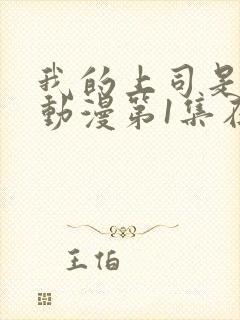 我的上司是
動漫第1集在
王伯